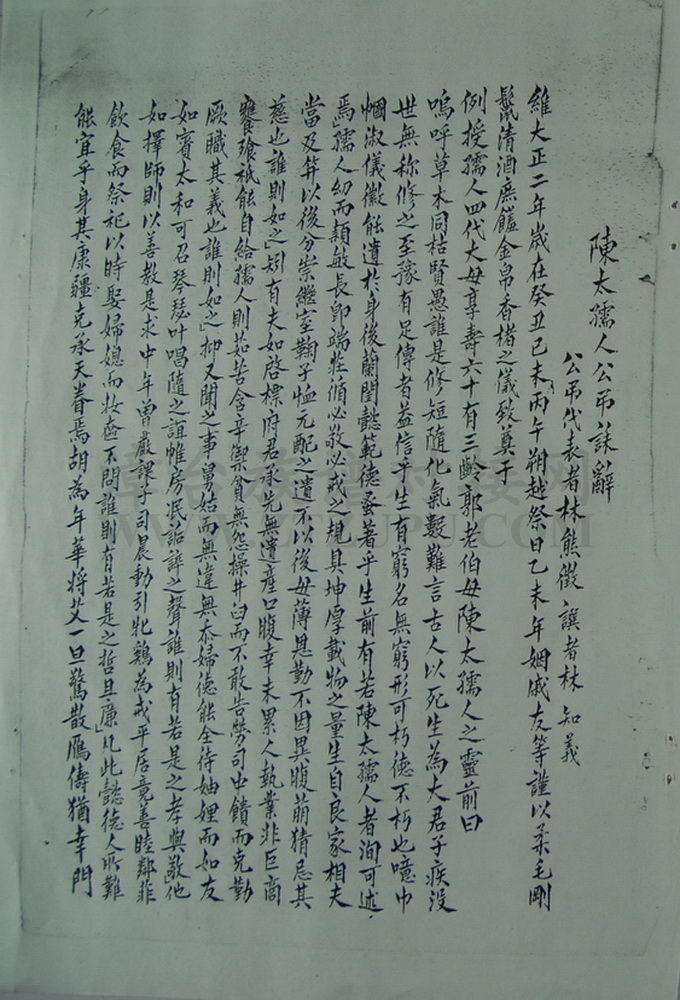 陳太孺人公弔誄辭
公弔代表者林熊徵 譔者林知義
維大正二年歲在癸丑己未丙午朔越祭日乙未年姻戚友等謹以柔毛剛
鬣清酒庶饈金帛香楮之儀致奠于
例授孺人四代大母享壽六十有三齡郭老伯母陳太孺人之靈前曰
嗚呼草木同枯賢愚誰是修短隨化氣數難言古人以死生為大君子疾没
世無称修之至豫有足傳者益信乎生有窮名無窮形可朽德不朽也噫巾
幗淑儀徽能遺於身後蘭閨懿範德蚤著乎生前有若陳太孺人者洵可述
焉孺人幼而穎敏長即端莊循必敬必戒之規具坤厚載物之量生自良家相夫
當及笄以後分崇繼室鞠子恤元配之遺不以後母薄恩勤不因異腹萌猜忌其
慈也誰則如之」矧有夫如啓標府君承先無遺產口腹幸未累人執業非巨商
饔飱祗能自給孺人則茹苦含辛禦貧無怨操井臼而不敢告勞司中饋而克勤
厥職其義也誰則如之」抑又聞之事舅姑而無違無忝婦德能全待妯娌而如友
如賓太和可召琴瑟叶唱隨之誼帷房泯詬誶之聲誰則有若是之孝與敬」他
如擇師則以善教是求中年曾嚴課子司晨動引牝鷄為戒平居竟善睦鄰菲
飲食而祭祀以時娶婦媳而妝奩不問誰則有若是之哲且廉」凡此懿德人所難
能宜乎身其康彊克承天眷焉胡為年華將艾一旦驚散鴈儔猶幸門